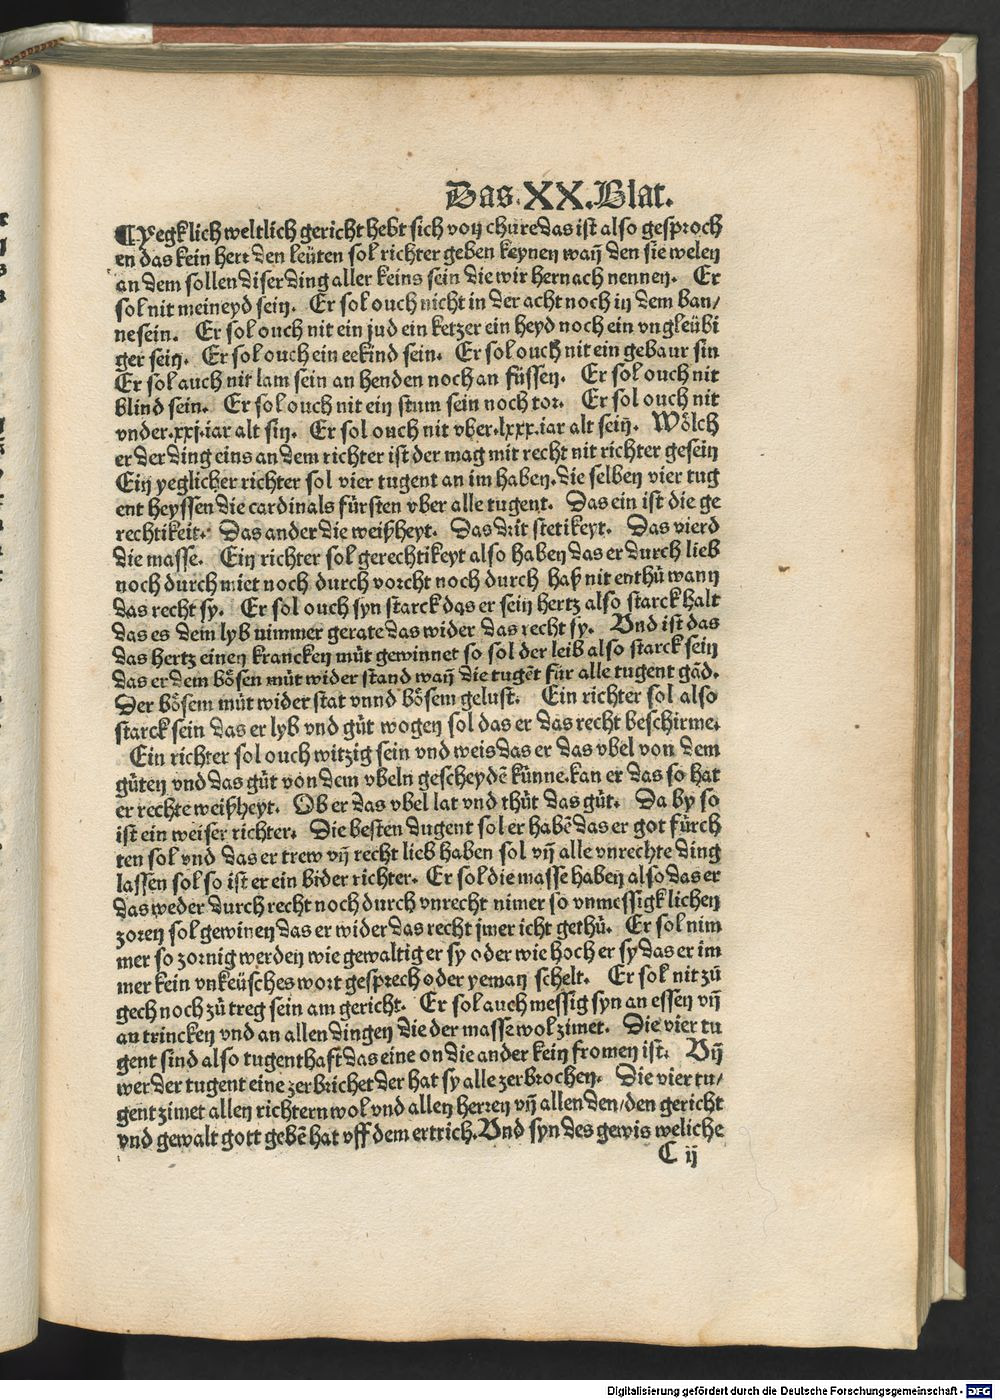 Das.XX.Blat.
¶Yegklich weltlich gericht hebt sich voṅ chure das ist also gesproch
en das kein herr den leüten sol richter geben keynen wan̄ den sie weleṅ
an dem sollen diser ding aller keins sein die wir hernach nennen. Er
sol nit meineyd sein. Er sol ouch nicht in der acht noch in dem ban/
ne sein. Er sol ouch nit ein jud ein ketzer ein heyd noch ein vngleübi
ger sein. Er sol ouch ein eekind sein. Er sol ouch nit ein gebaur sin
Er sol auch nit lam sein an henden noch an füssen. Er sol ouch nit
blind sein. Er sol ouch nit ein stum sein noch tor. Er sol ouch nit
vnder.xxj.iar alt sin. Er sol ouch nit vber.lxxx.iar alt sein. Wölch
er der ding eins an dem richter ist der mag mit recht nit richter gesein
Ein yeglicher richter sol vier tugent an im haben.die selben vier tug
ent heyssen die cardinals fürsten vber alle tugent. Das ein ist die ge
rechtikeit. Das ander die weißheyt. Das drit stetikeyt. Das vierd
die masse. Ein richter sol gerechtikeyt also haben das er durch lieb
noch durch miet noch durch vorcht noch durch haß nit enthů wann
das recht sy. Er sol ouch syn starck das er sein hertz also starck halt
das es dem lyb nimmer gerate das wider das recht sy. Vnd ist das
das hertz einen krancken můt gewinnet so sol der leib also starck sein
das er dem bösen můt wider stand wan̄ die tugēt für alle tugent gād.
Der bösem můt wider stat vnnd bösem gelust. Ein richter sol also
starck sein das er lyb vnd gůt wogen sol das er das recht beschirme.
Ein richter sol ouch witzig sein vnd weis das er das vbel von dem
gůten vnd das gůt von dem vbeln gescheydē künne.kan er das so hat
er rechte weißheyt. Ob er das vbel lat vnd thůt das gůt. Da by so
ist ein weiser richter. Die besten dugent sol er habē das er got fürch
ten sol vnd das er trew vn̄ recht lieb haben sol vn̄ alle vnrechte ding
lassen sol so ist er ein bider richter. Er sol die masse haben also das er
das weder durch recht noch durch vnrecht nimer so vnmessigklichen
zoren sol gewinen das er wider das recht jmer icht gethů. Er sol nim
mer so zornig werden wie gewaltig er sy oder wie hoch er sy das er im
mer kein vnkeüsches wort gesprech oder yeman schelt. Er sol nit zů
gech noch zů treg sein am gericht. Er sol auch messig syn an essen vn̄
an trincken vnd an allen dingen die der masse wol zimet. Die vier tu
gent sind also tugenthaft das eine on die ander kein fromen ist. Vn̄
wer der tugent eine zerbrichet der hat sy alle zerbrochen. Die vier tu/
gent zimet allen richtern wol vnd allen herren vn̄ allen den/den gericht
vnd gewalt gott gebē hat vff dem ertrich.Vnd syn des gewis weliche
C ij
Digitalisierung gefördert durch die Deutsche Forschungsgemeinschaft - DFG